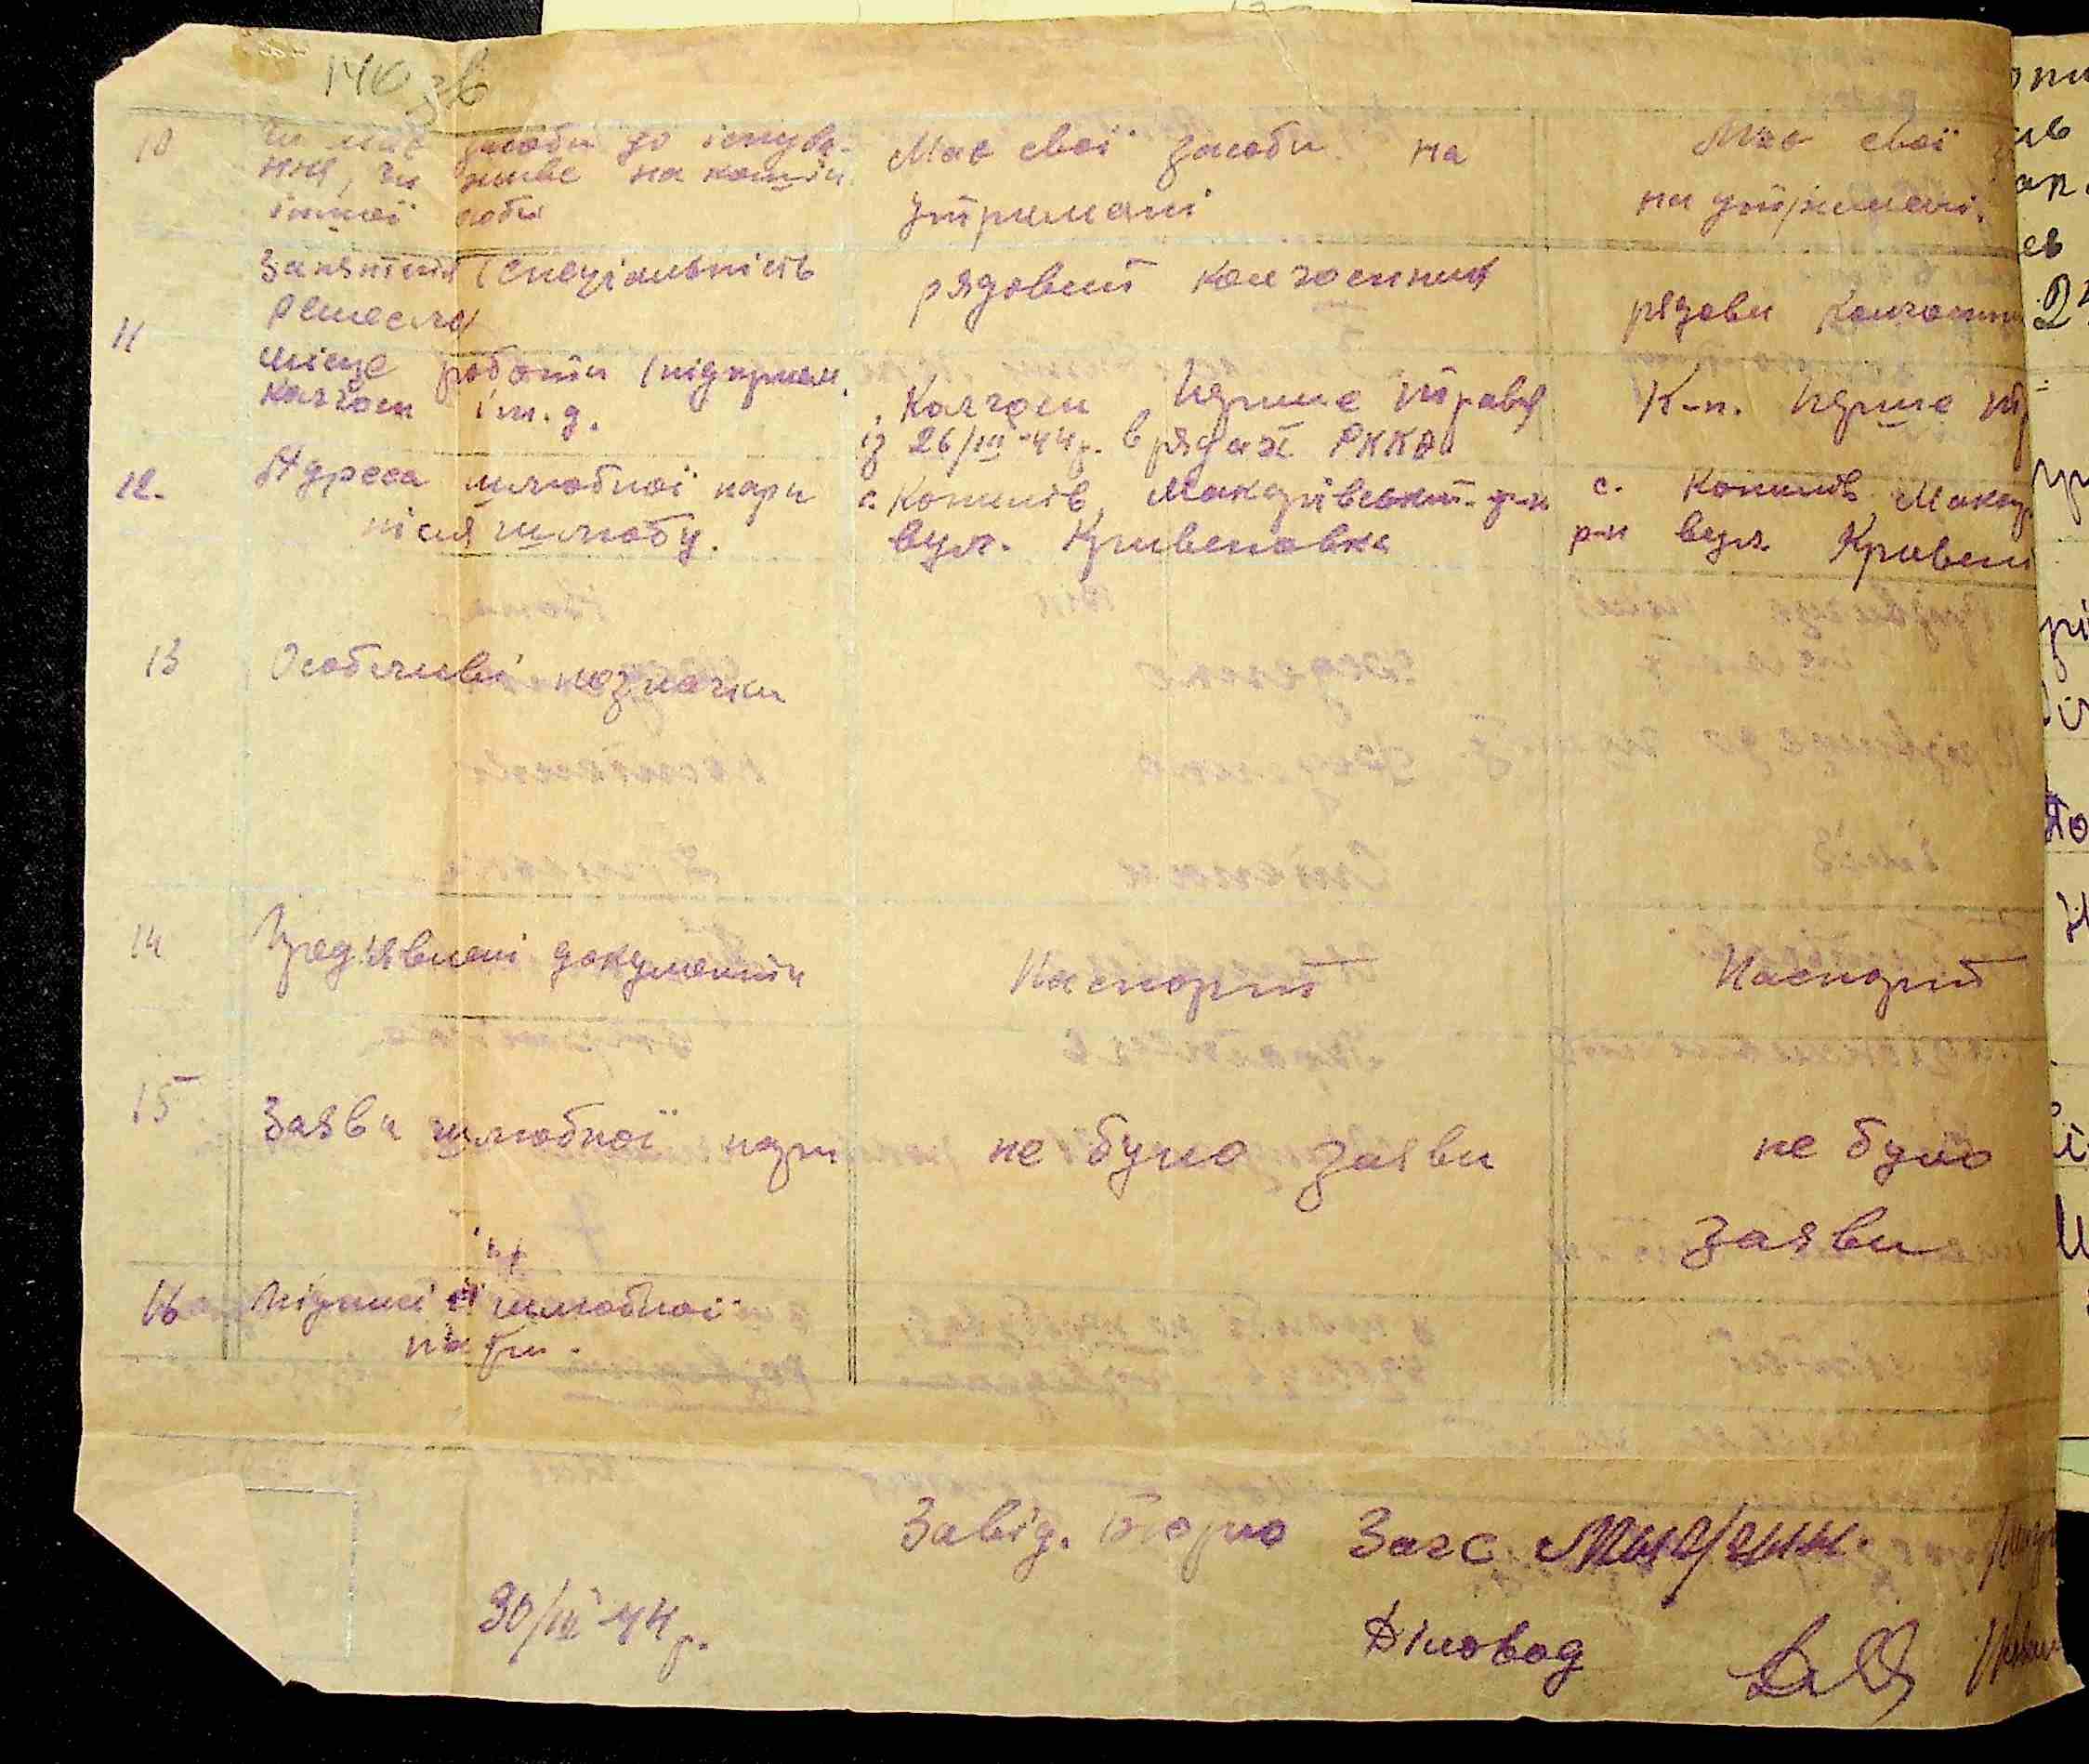 140 зв
10 Чи має засоби до існува-
ння, чи живе на кошти
іншої особи
Має свої засоби на
утримані
Має свої
на утримані.
11
Заняття (спеціальність
ремесло)
рядовий колгоспник
рядови колгоспни
місце роботи (підприєм.
колгосп і т.д.
Колгосп Перше травня
із 26/III-44р. в рядах РККА
К-п. Перше тр
12. Адреса шлюбної пари
після шлюбу.
с. Копилів Макарівський р-н
вул. Кривеновка
с. Копилів Макар
р-н вул. Кривен
13 Особливі позначки
14 Пред'явлені документи
Паспорт
Паспорт
15 Заяви шлюбної пари
не було заяви
не було
заяви
16 Підписі шлюбної
пари.
Завід. Бюро Загс
30/III 44р.
Діловод